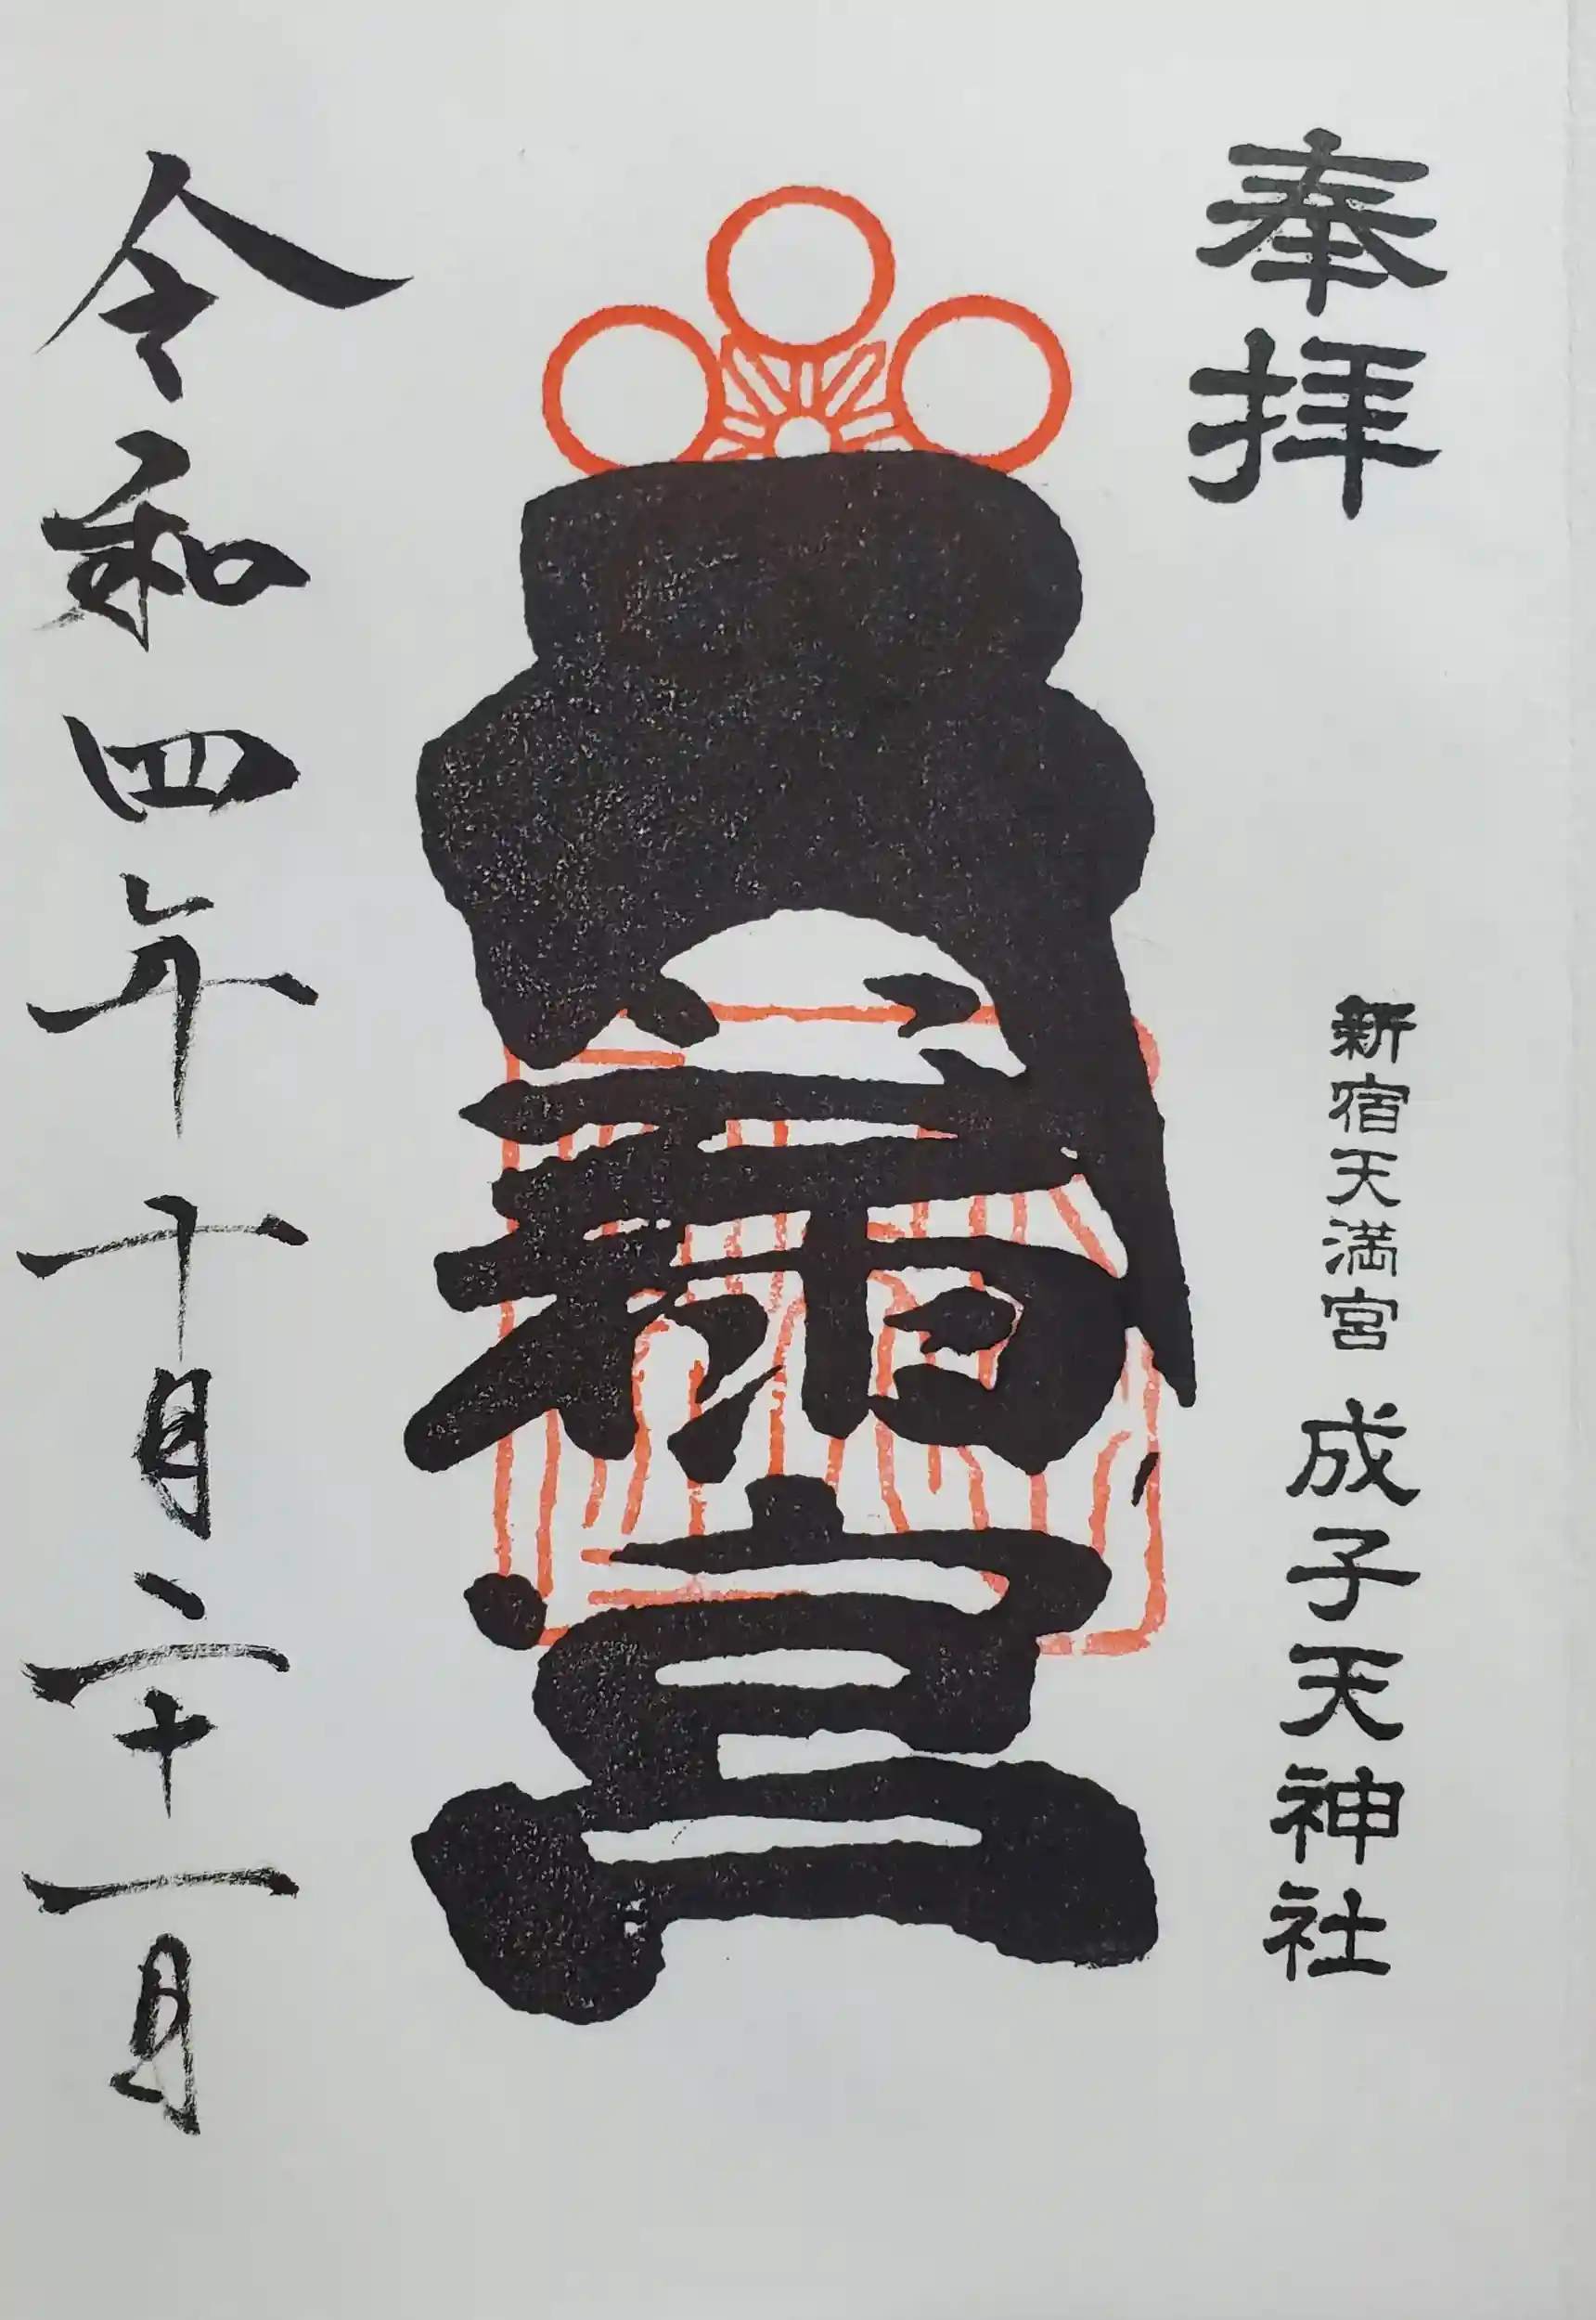 奉拝
新宿天満宮 成子天神社
令和四年十月二十一日